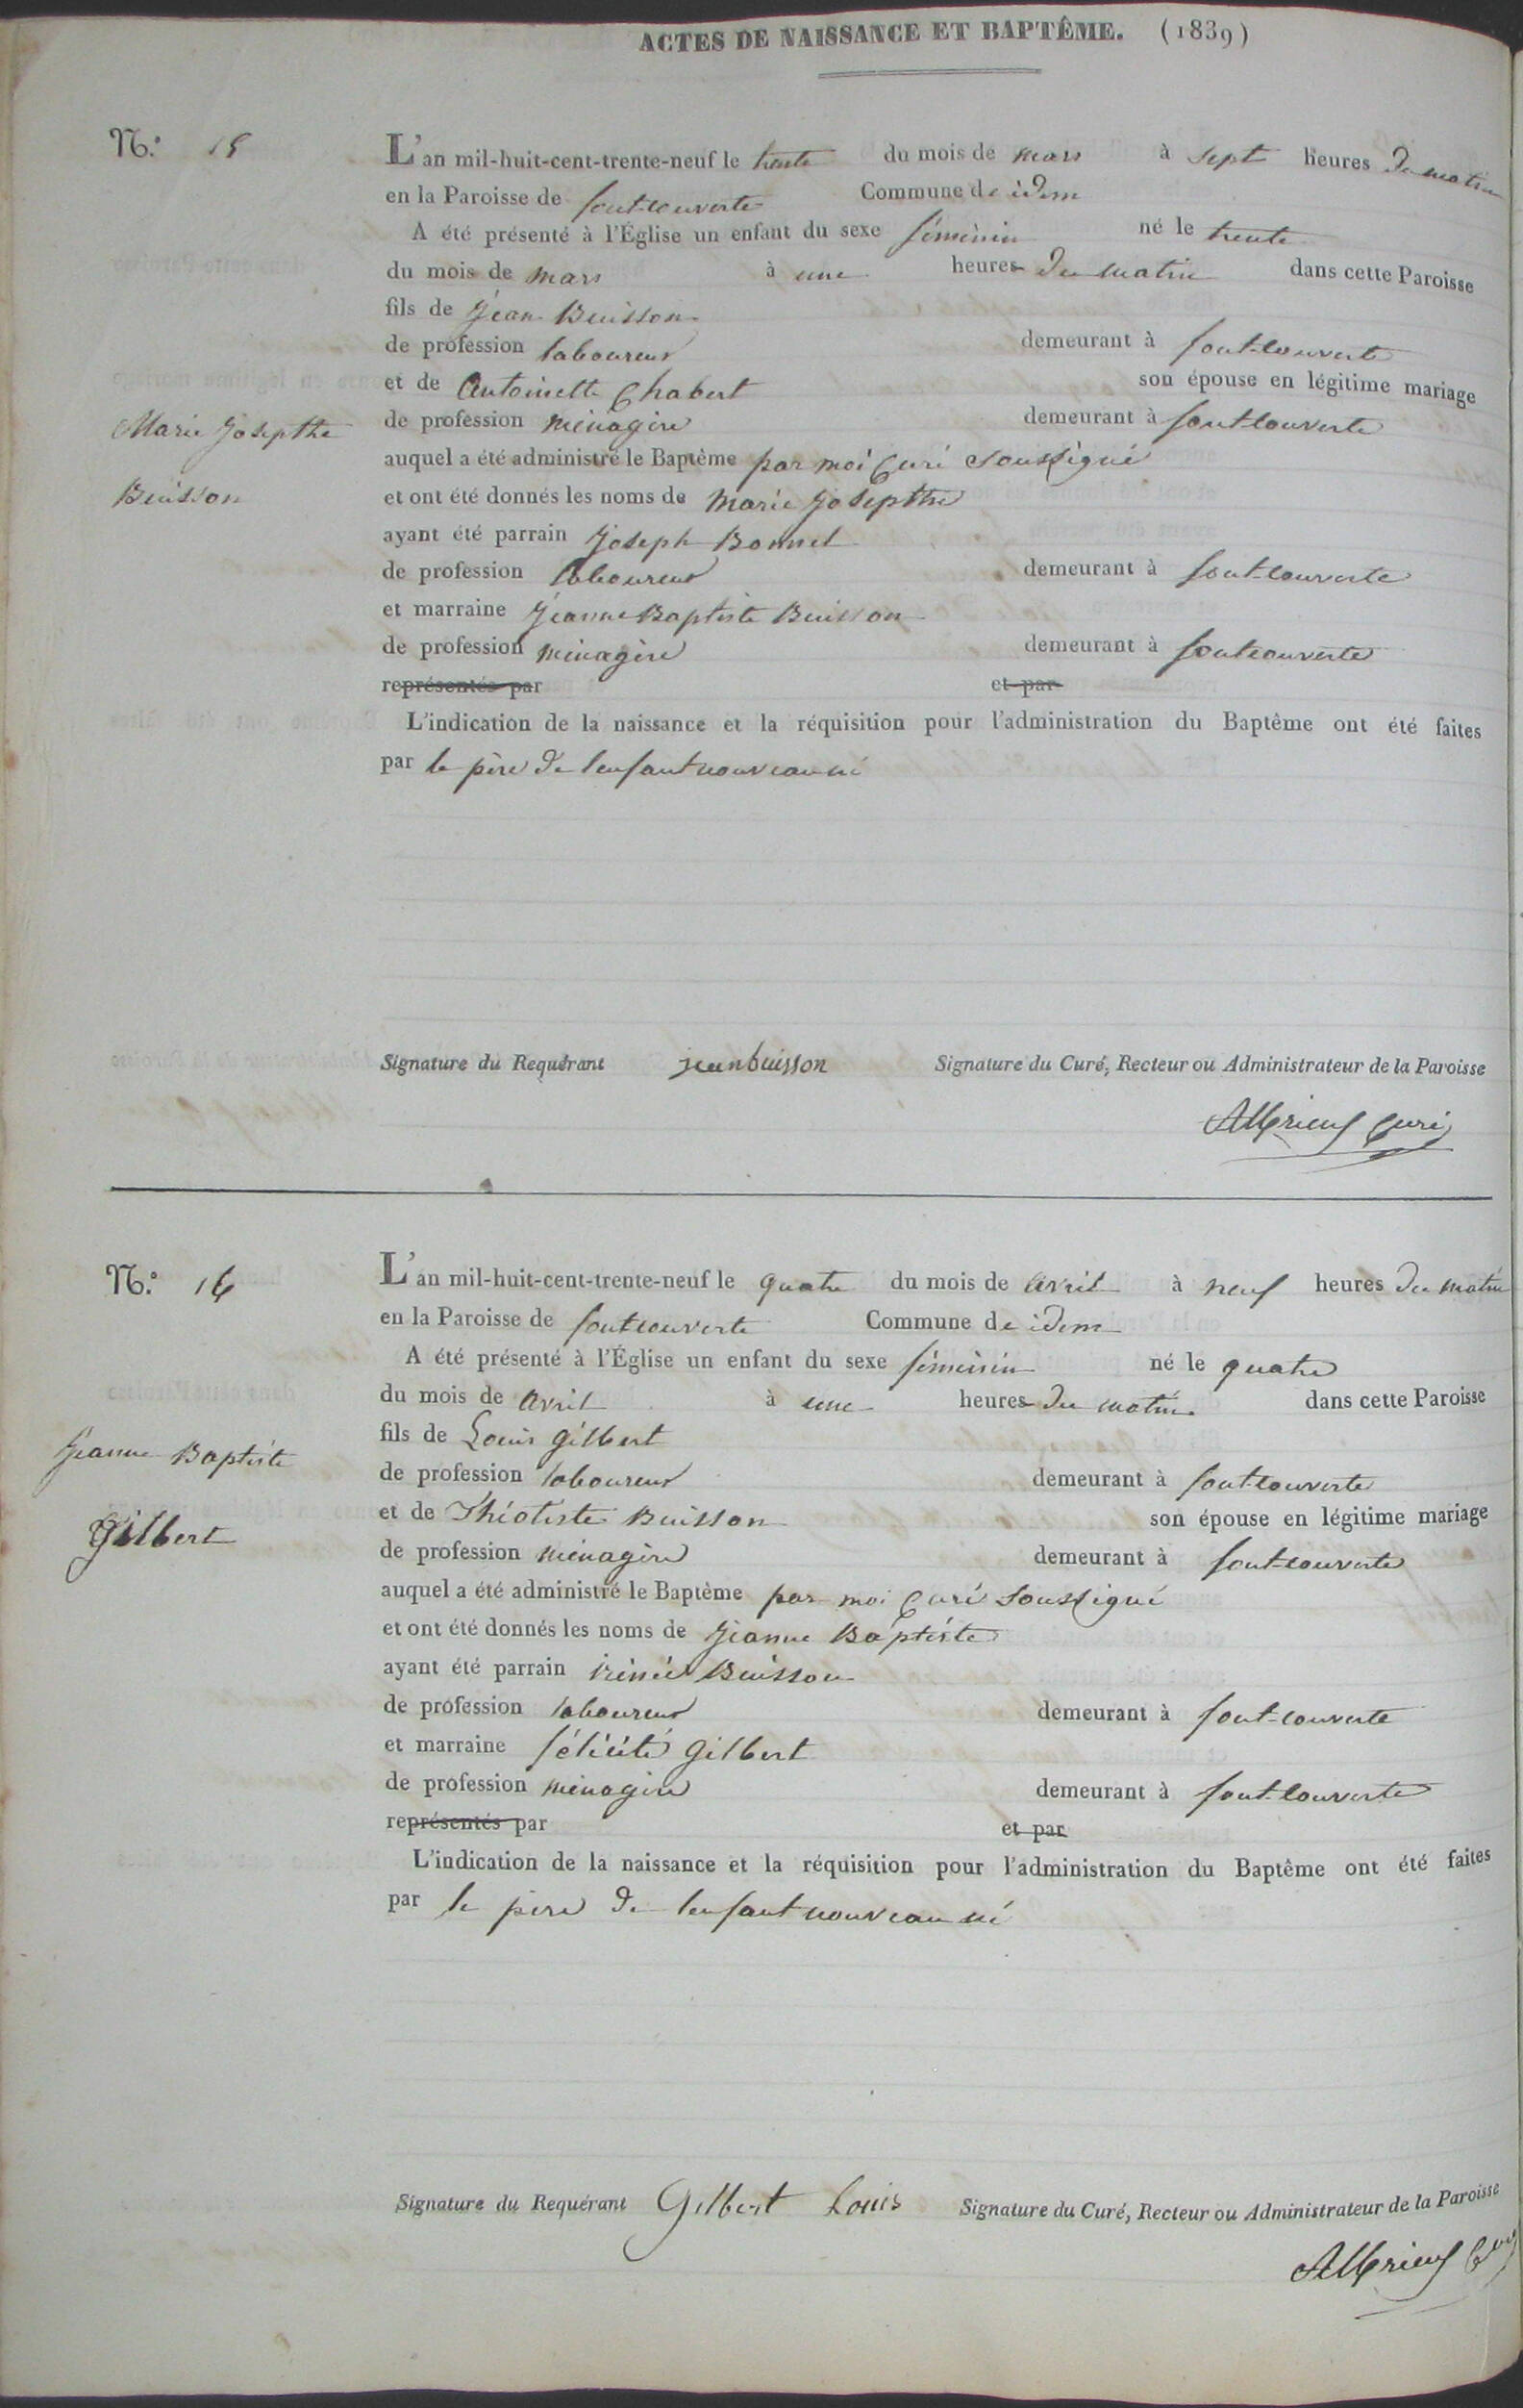 ACTES DE NAISSANCE ET BAPTÊME. (1839)
N.° 15
L'an mil-huit-cent-trente-neuf le trente du mois de mars à sept heures du matin
en la Paroisse de fontcouverte Commune de idem
A été présenté à l'Église un enfant du sexe féminin né le trente
du mois de mars à une heures du matin dans cette Paroisse
fils de Jean Buisson
de profession laboureur demeurant à fontcouverte
et de Antoinette Chabert son épouse en légitime mariage
Marie Josepthe
de profession ménagère demeurant à fontcouverte
auquel a été administré le Baptême par moi Curé soussigné
Buisson
et ont été donnés les noms de Marie Josepthe
ayant été parrain Joseph Bonnet
de profession laboureur demeurant à font-couverte
et marraine Jeanne Baptiste Buisson
de profession ménagère demeurant à fontcouverte
représentés par et par
L'indication de la naissance et la réquisition pour l'administration du Baptême ont été faites
par le père de lenfant nouveau né
Signature du Requérant jean buisson Signature du Curé, Recteur ou Administrateur de la Paroisse
Curé
N.° 16
L'an mil-huit-cent-trente-neuf le quatre du mois de avril à neuf heures du matin
en la Paroisse de fontcouverte Commune de idem
A été présenté à l'Église un enfant du sexe féminin né le quatre
du mois de avril à une heures du matin dans cette Paroisse
fils de Louis gilbert
Jeanne Baptiste
de profession laboureur demeurant à fontcouverte
et de Théotiste Buisson son épouse en légitime mariage
Gilbert
de profession ménagère demeurant à font-couverte
auquel a été administré le Baptême par moi Curé soussigné
et ont été donnés les noms de Jeanne Baptiste
ayant été parrain irénée Buisson
de profession laboureur demeurant à font-couverte
et marraine félicité gilbert
de profession ménagère demeurant à font-couverte
représentés par et par
L'indication de la naissance et la réquisition pour l'administration du Baptême ont été faites
par le père de lenfant nouveau né
Signature du Requérant Gilbert Louis Signature du Curé, Recteur ou Administrateur de la Paroisse